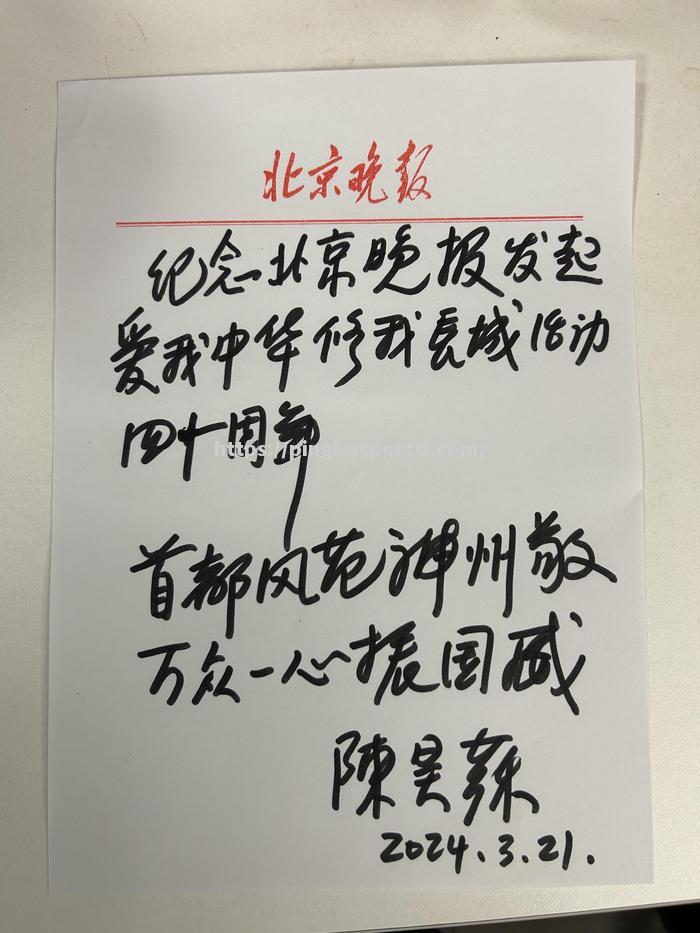 北京晚报
纪念北京晚报发起
爱我中华修我长城活动
四十周年
https://pingbosportsl.com/
首都风范神州敬
万众一心振国威
陳昊蘇
2024.3.21.